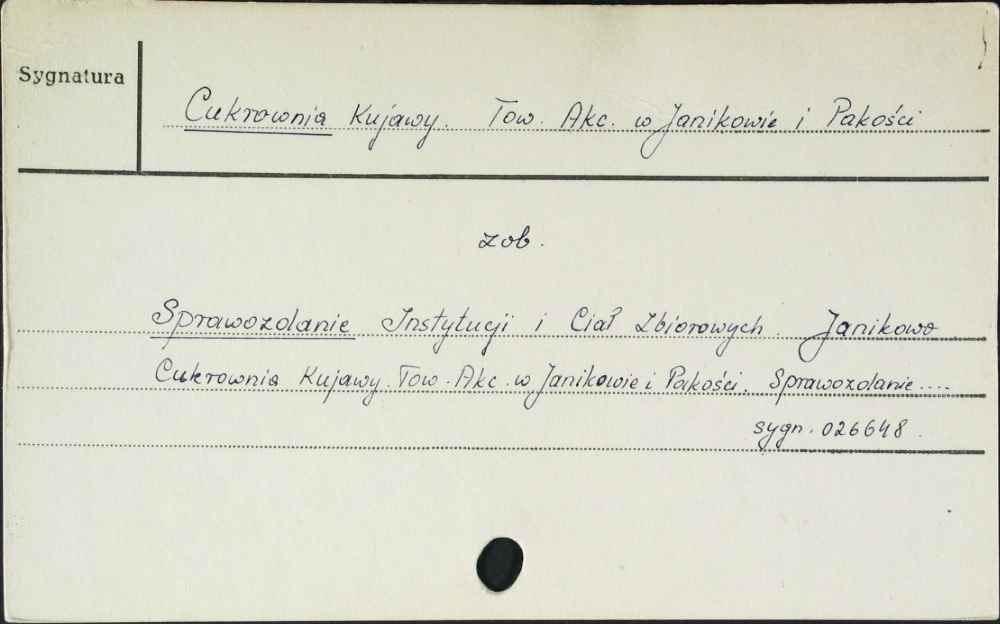 Sygnatura
Cukrownia Kujawy. Tow. Akc. w Janikowie i Pakości
zob.
Sprawozdanie Instytucji i Ciał Zbiorowych. Janikowo
Cukrownia Kujawy. Tow. Akc. w Janikowie i Pakości. Sprawozdanie....
sygn. 026648.